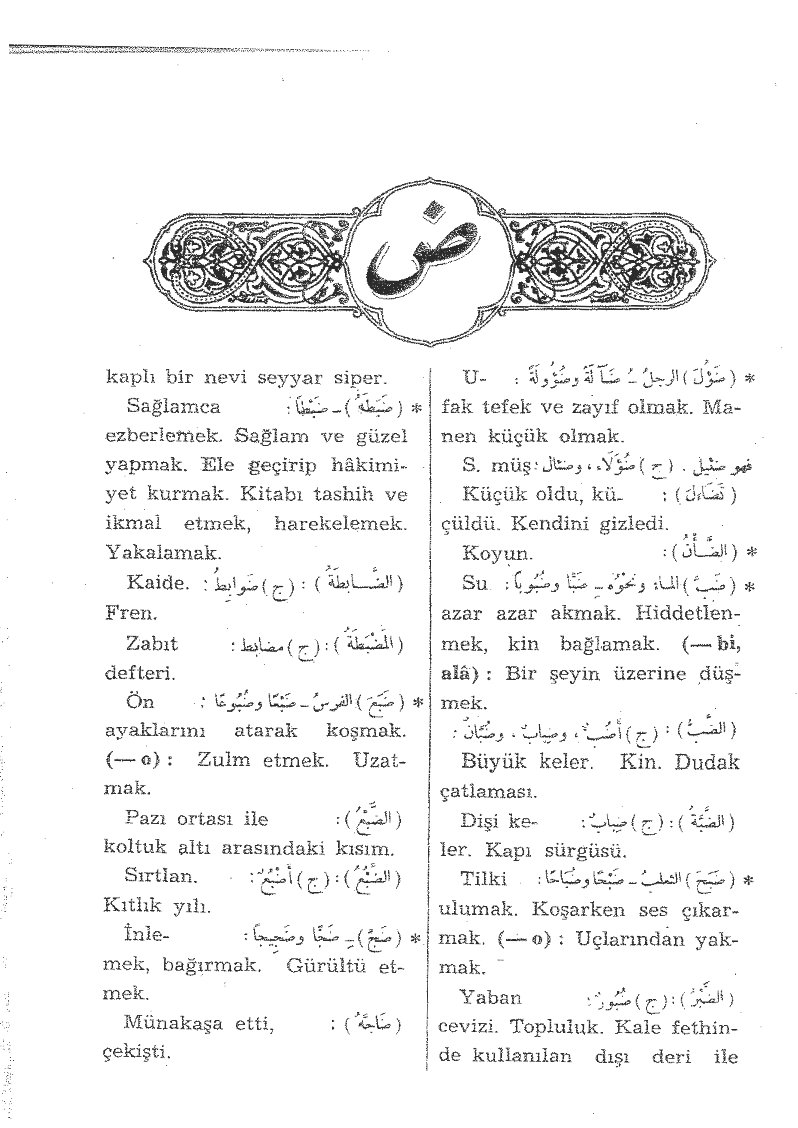 ض
* (ضَؤُلَ) الرجلُ ـُ ضَآلَةً وضُؤُولَةً : U-
fak tefek ve zayıf olmak. Ma-
nen küçük olmak.
فهو ضئيل . (ج) ضُؤَلَاء، وضئال: S. müş
(تَضَاءَلَ) : Küçük oldu, kü-
çüldü. Kendini gizledi.
* (الضَّأْنُ) : Koyun.
* (ضَبَّ) الماءُ ونحوُه ـِ ضَبًّا وضُبُوبًا : Su
azar azar akmak. Hiddetlen-
mek, kin bağlamak. (— bi,
alâ) : Bir şeyin üzerine düş-
mek.
(الضَّبُّ) : (ج) أضُبٌّ، وضِبابٌ، وضُبَّانٌ :
Büyük keler. Kin. Dudak
çatlaması.
(الضَّبَّةُ) : (ج) ضِبابٌ: Dişi ke-
ler. Kapı sürgüsü.
* (ضَبَحَ) الثعلبُ ـَ ضَبْحًا وضُبَاحًا: Tilki
ulumak. Koşarken ses çıkar-
mak. (— o) : Uçlarından yak-
mak.
(الضَّبْرُ) : (ج) ضُبُورٌ: Yaban
cevizi. Topluluk. Kale fethin-
de kullanılan dışı deri ile
kaplı bir nevi seyyar siper.
* (ضَبَطَهُ) ـِ ضَبْطًا: Sağlamca
ezberlemek. Sağlam ve güzel
yapmak. Ele geçirip hâkimi-
yet kurmak. Kitabı tashih ve
ikmal etmek, harekelemek.
Yakalamak.
(الضَّابِطَةُ) : (ج) ضَوابِطُ : Kaide.
Fren.
(المَضْبَطَةُ) : (ج) مضابط: Zabıt
defteri.
* (ضَبَعَ) الفرسُ ـَ ضَبْعًا وضُبُوعًا : Ön
ayaklarını atarak koşmak.
(— o) : Zulm etmek. Uzat-
mak.
(الضَّبْعُ) : Pazı ortası ile
koltuk altı arasındaki kısım.
(الضَّبُعُ) : (ج) أضْبُعٌ: Sırtlan.
Kıtlık yılı.
* (ضَجَّ) ـِ ضَجًّا وضَجِيجًا: İnle-
mek, bağırmak. Gürültü et-
mek.
(ضَاجَّهُ) : Münakaşa etti,
çekişti.